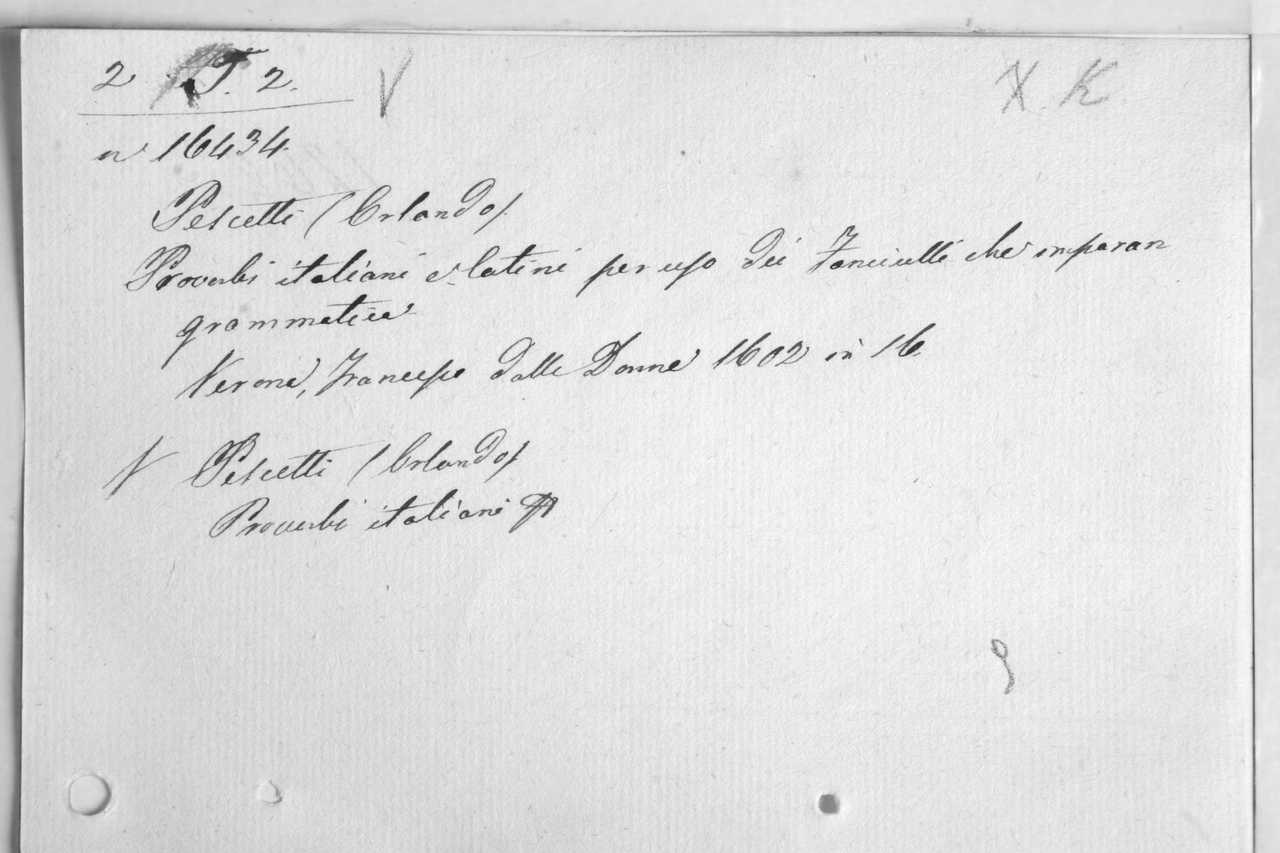 2 T. 2. V X. K
n 16434
Pescetti (Orlando)
Proverbi italiani e latini per uso dei Fanciulli che imparan
grammatica
Verona, Francesco dalle Donne 1602 in 16
V Pescetti (Orlando)
Proverbi italiani